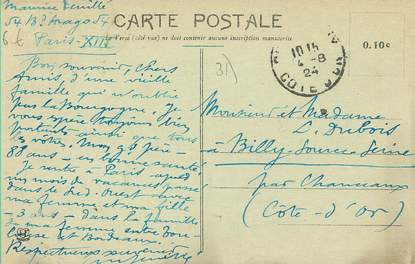 Maurice Feuillé
54 Bd Arago 54
Paris-XIII
CARTE POSTALE
Le Verso (côté vue) ne doit contenir aucune inscription manuscrite
0.10c
10 15
4-8
24
COTE D'OR
31
Bon souvenir, Chers
Amis, d'une vieille
famille qui n'oublie
pas la Bourgogne. Je
vous espère toujours bien
portants ainsi que tous
les vôtres. Mon père
88 ans - en bonne santé!
Je rentre à Paris après
un mois de vacances passé
dans le Sud. Ouest avec
ma femme et ma fille
- 3 ans - dans la famille
de ma femme entre Tou-
louse et Bordeaux.
Respectueusement
Monsieur et Madame
L. Dubois
- Billy-Source-Seine
par Chanceaux
(Côte-d'Or)